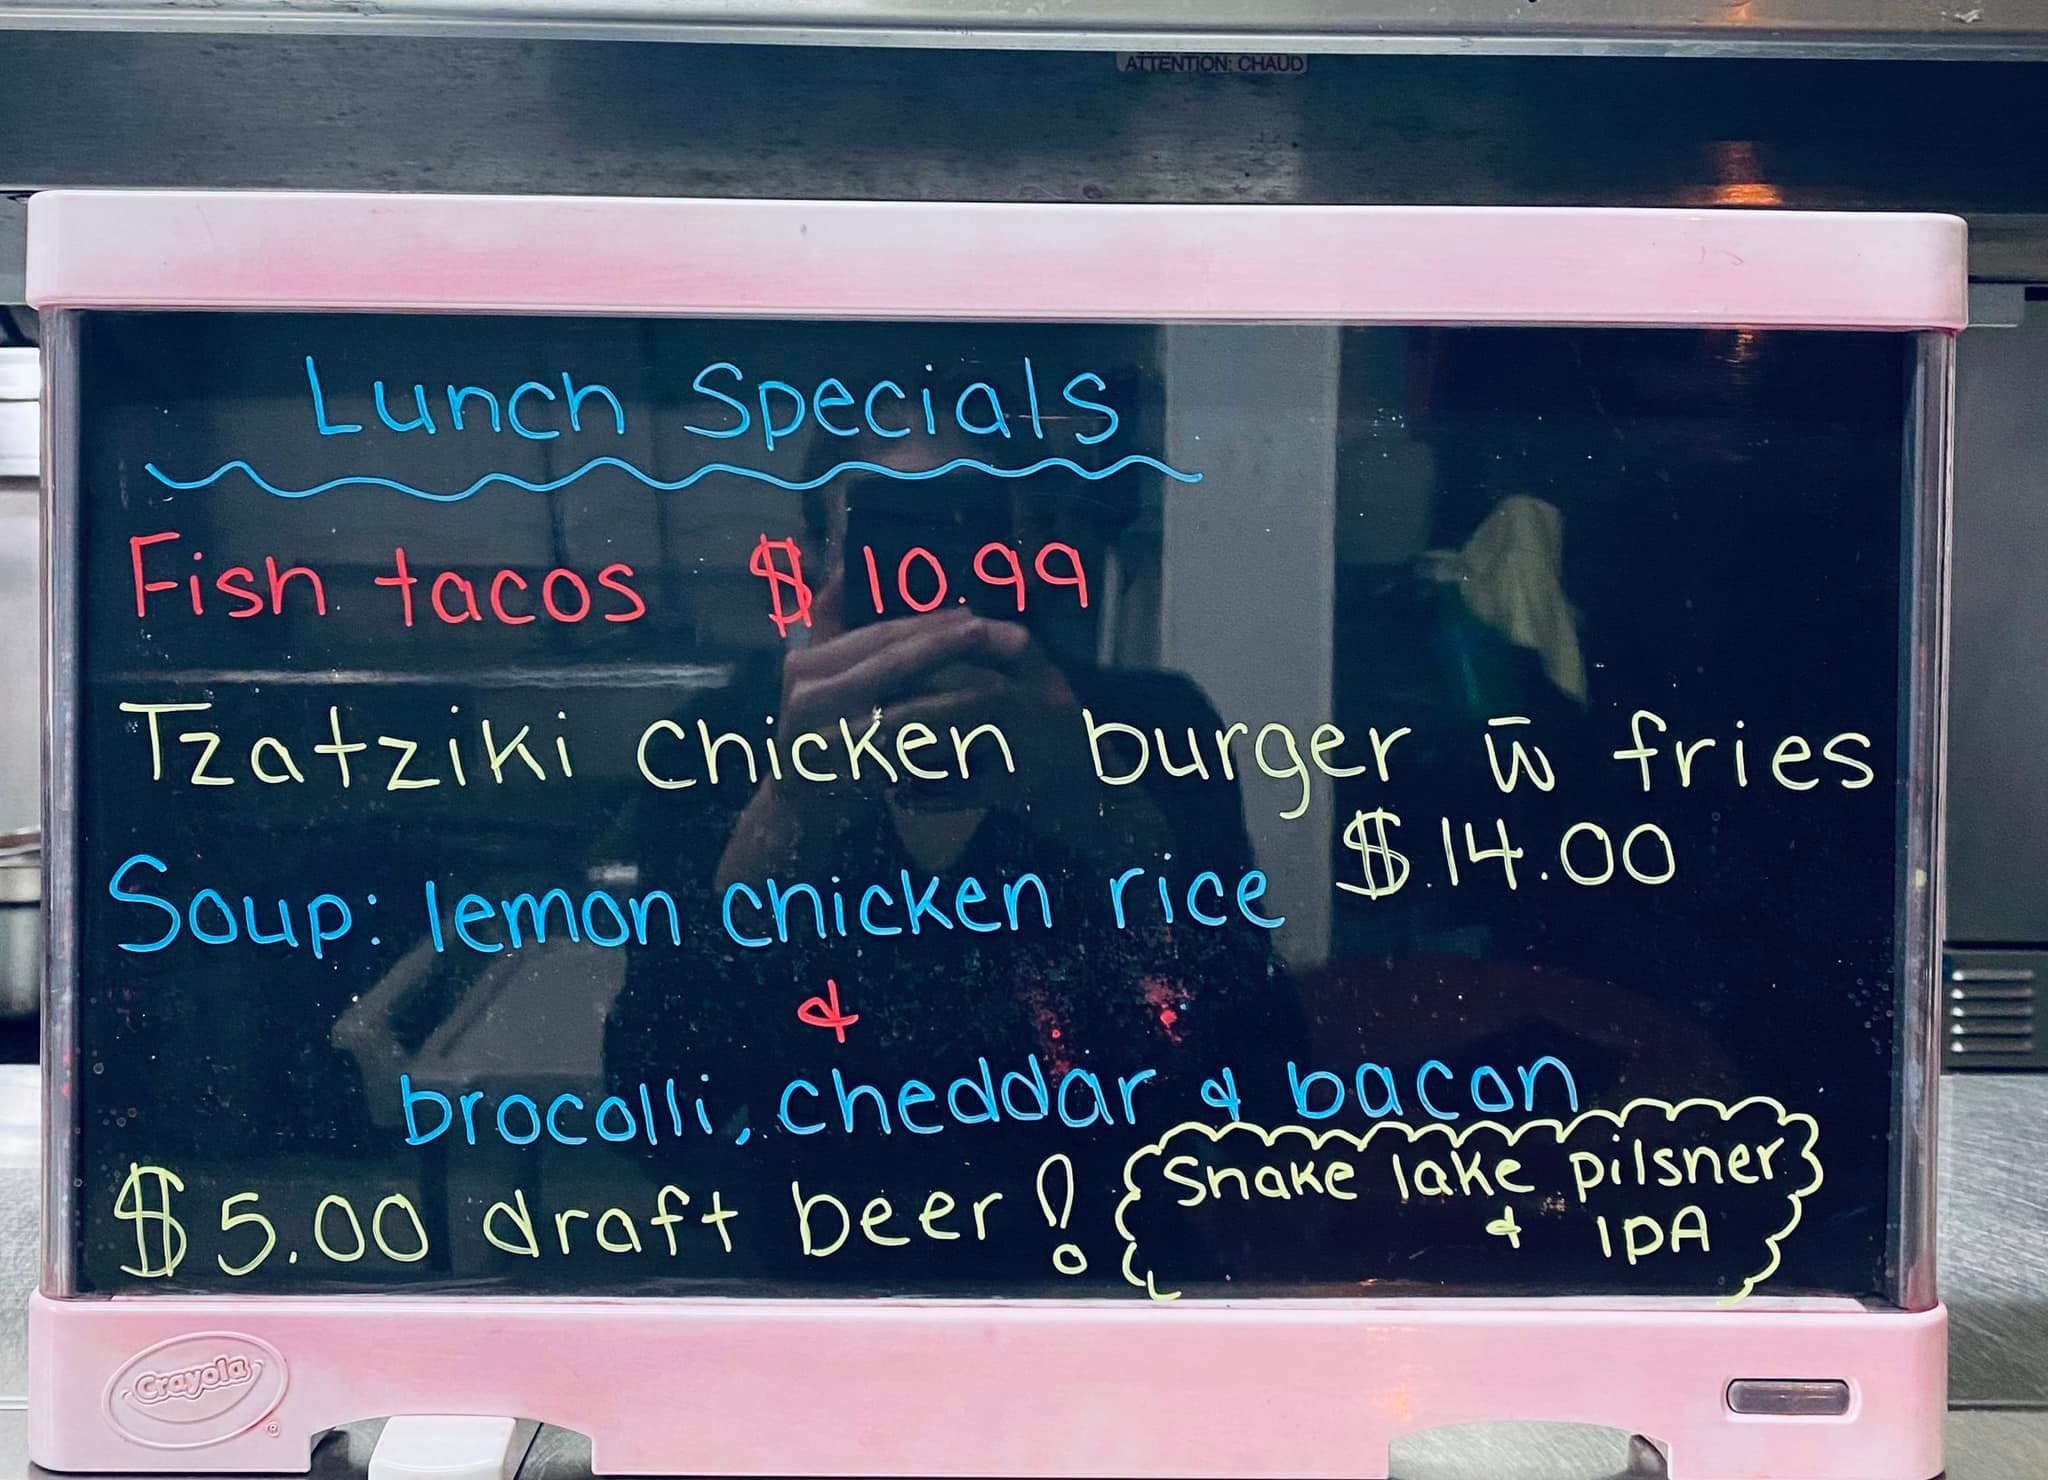 ATTENTION: CHAUD
Lunch Specials
Fish tacos $10.99
Tzatziki chicken burger w̄ fries
$14.00
Soup: lemon chicken rice
&
brocolli, cheddar & bacon
$5.00 draft beer!
Snake lake pilsner
& IPA
Crayola®